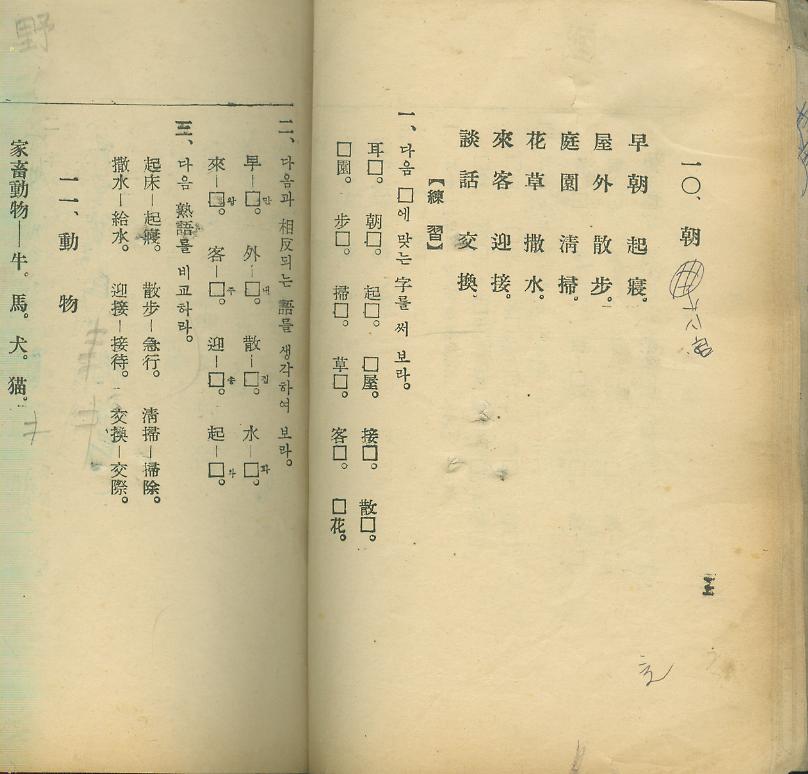 一〇、朝
早朝起寢。
屋外散步。
庭園淸掃。
花草撒水。
來客迎接。
談話交換、
【練習】
一、다음 □에 맞는 字를 써 보라。
耳□。 朝□。 起□。 □屋。 接□。 散□。
□園。 步□。 掃□。 草□。 客□。 □花。
二、다음과 相反되는 語를 생각하여 보라。
早—□만。 外—□내。 散—□집。 水—□화。
來—□왕。 客—□주。 迎—□송。 起—□와。
三、다음 熟語를 비교하라。
起床—起寢。 散步—急行。 淸掃—掃除。
撒水—給水。 迎接—接待。 交換—交際。
一一、動物
家畜動物——牛。馬。犬。猫。
野